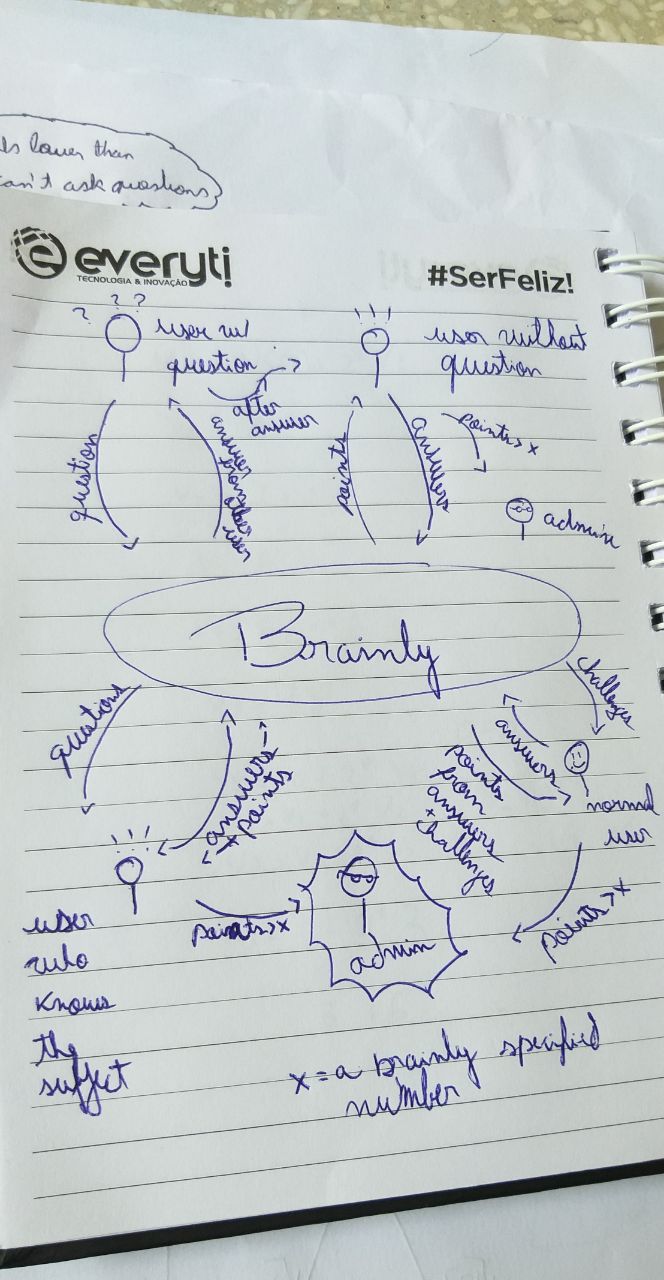 ts lower than
can't ask questions
everyti
TECNOLOGIA & INOVAÇÃO
#SerFeliz!
? ? ?
user w/
question
user without
question
after
answer
question
answer
from other
user
points
answers
points > x
admin
Brainly
questions
answers →
← + points
challenges
answers
points
from
answers
+
challenges
normal
user
user
who
knows
the
suffect
points > x
admin
points > x
x = a brainly specified
number